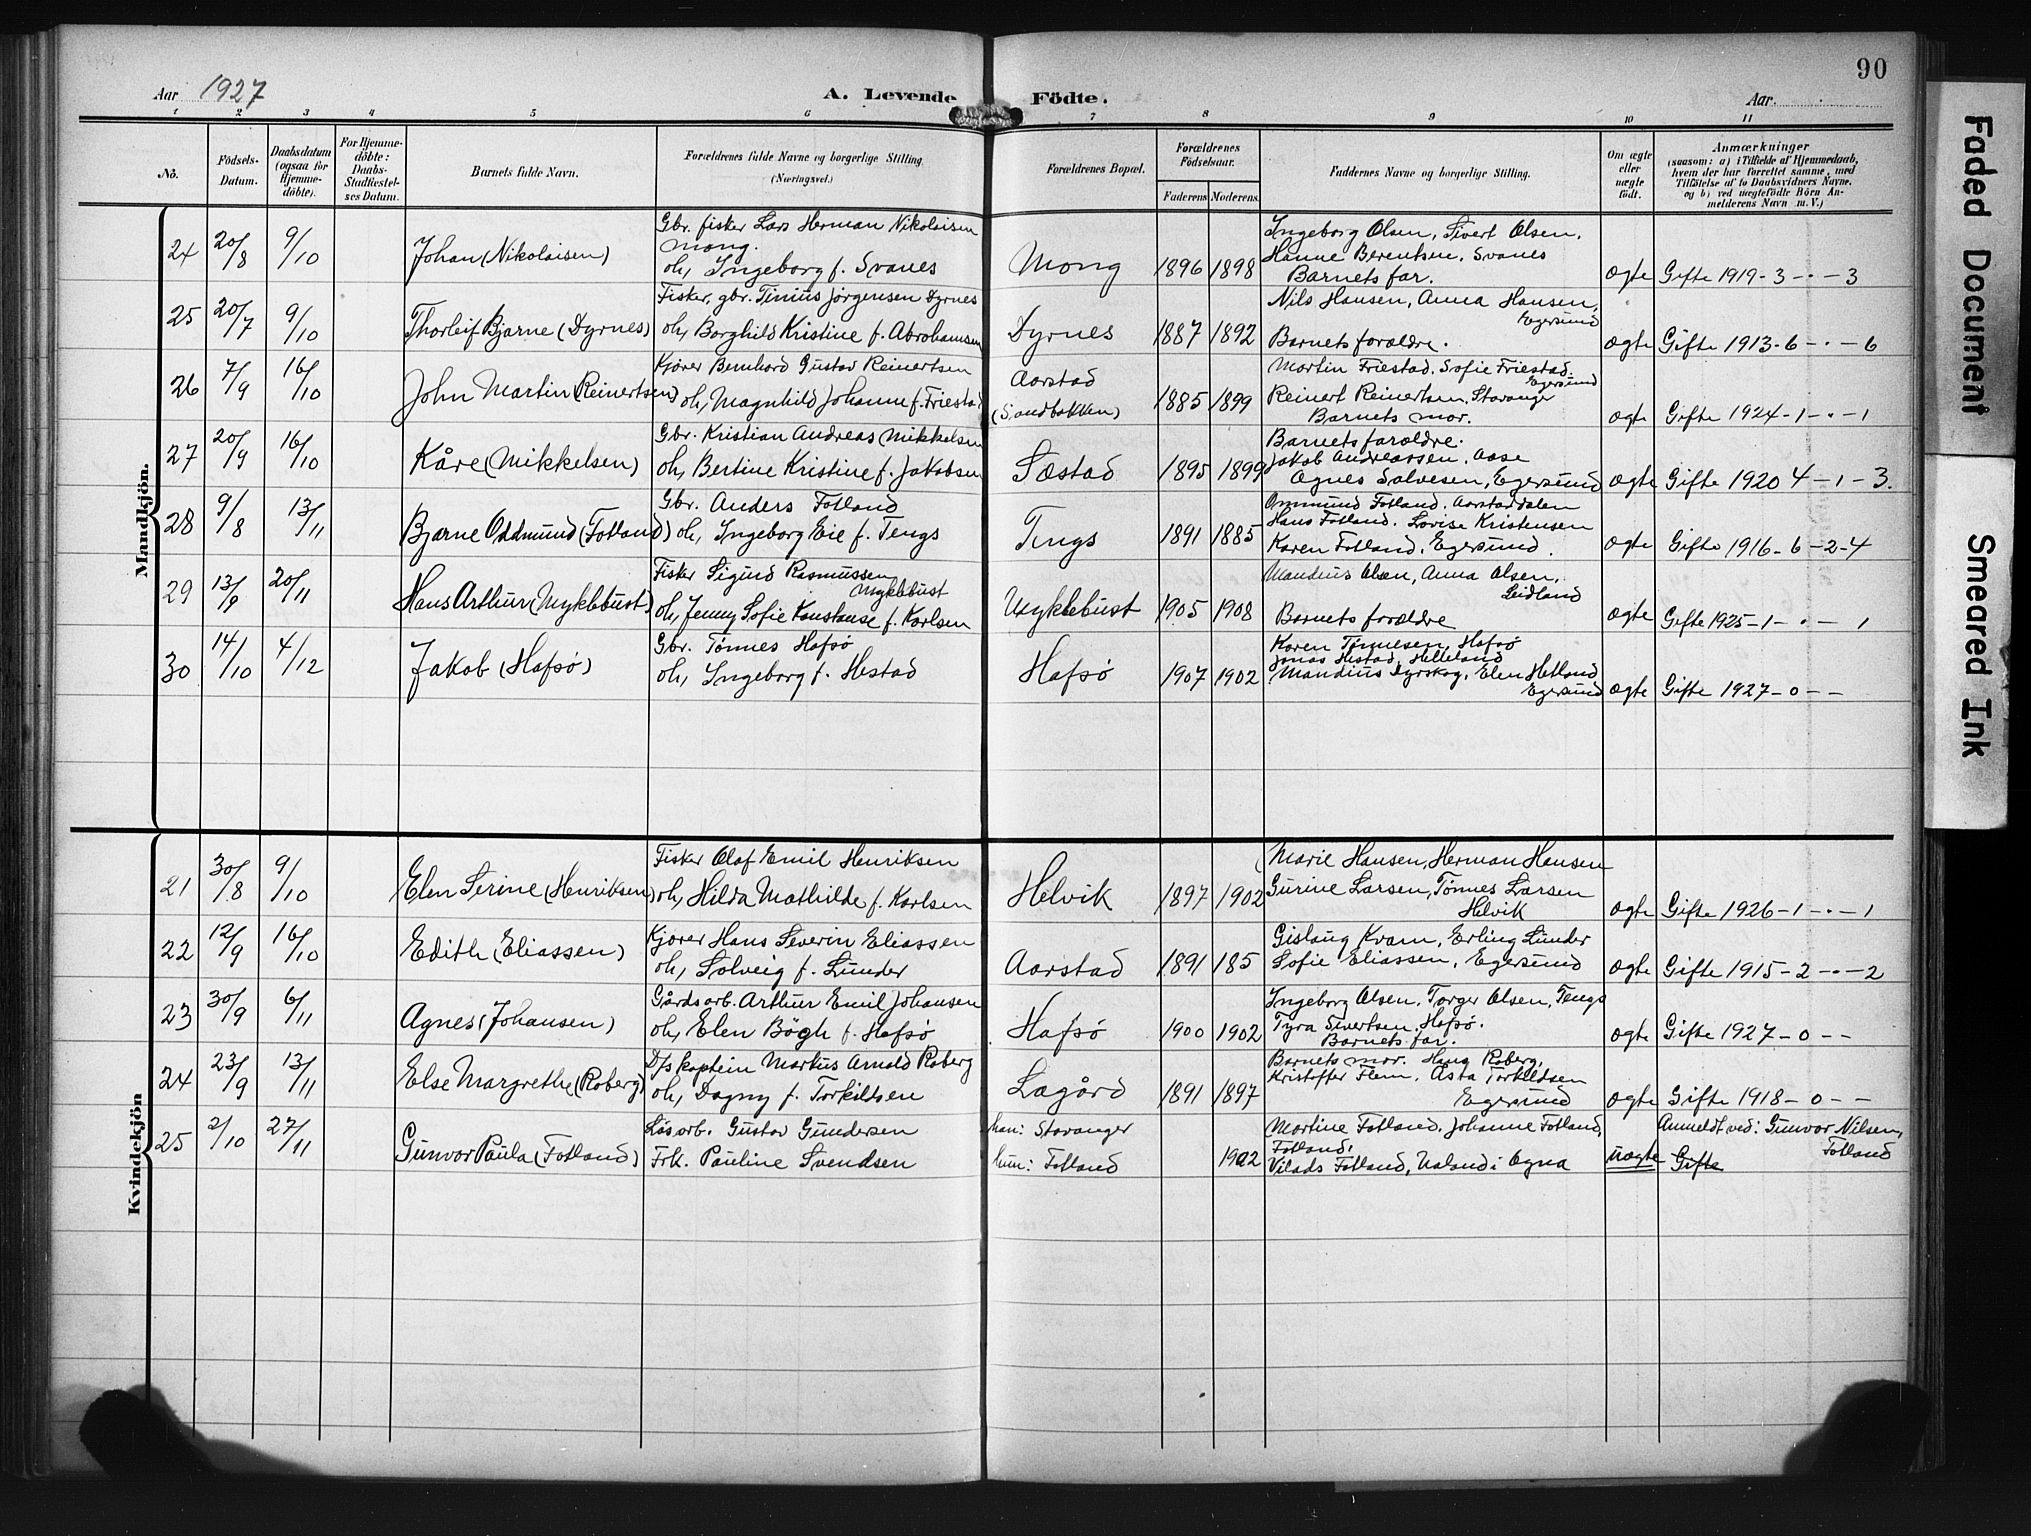 90
Aar 1927
A. Levende
Födte.
Aar
1 2 3 4 5 6 7 8 9 10 11
No.
Födsels-
Datum.
Daabsdatum
(ogsaa for
Hjemme-
döbte).
For Hjemme-
döbte:
Daabs-
Stadfæstel-
ses Datum.
Barnets fulde Navn.
Forældrenes fulde Navne og borgerlige Stilling.
(Næringsvei.)
Forældrenes Bopæl.
Forældrenes
Födselsaar.
Faderens
Moderens
Faddernes Navne og borgerlige Stilling.
Om ægte
eller
uægte
født.
Anmærkninger
(saasom: a) i Tilfælde af Hjemmedaab,
hvem der har forrettet samme, med
Tilföielse af to Daabsvidners Navne.
og b) ved uægtefödte Börn An-
melderens Navn m. V.)
Mandkjön.
24 20/8 9/10 Johan (Nikolaisen)
Gbr. fisker Lars Herman Nikolaisen
Mong.
oh, Ingeborg f. Svanes
Mong 1896 1898
Ingeborg Olsen, Sivert Olsen,
Hanne Berentsen, Svanes
Barnets far.
ægte Gifte 1919-3 - · - 3
25 20/7 9/10 Thorleif Bjarne (Dyrnes)
Fisker, gbr. Tinius Jørgensen Dyrnes
oh, Borghild Kristine f. Abrahamsen
Dyrnes 1887 1892
Nils Hansen, Anna Hansen,
Egersund
Barnets forældre.
ægte Gifte 1913-6 - · - 6
26 7/9 16/10 John Martin (Reinertsen)
Kjører Bernhard Gustav Reinertsen
oh, Magnhild Johanne f. Friestad
Aarstad
(Sandbakken) 1885 1899
Martin Friestad, Sofie Friestad.
Egersund
Reinert Reinertsen, Stavanger
Barnets mor.
ægte Gifte 1924-1 - · - 1
27 20/9 16/10 Kåre (Mikkelsen)
Gbr. Kristian Andreas Mikkelsen
oh, Bertine Kristine f. Jakobsen
Sæstad 1895 1899
Barnets forældre.
Jakob Andreassen, Aase
Agnes Salvesen, Egersund
ægte Gifte 1920 4 - 1 - 3.
28 9/8 13/11 Bjarne Oddmund (Fotland)
Gbr. Anders Fotland
oh, Ingeborg Eie f. Tengs
Tengs 1891 1885
Ommund Fotland, Aarstaddalen
Hans Fotland, Lovise Kristensen
Karen Fotland, Egersund.
ægte Gifte 1916-6-2-4
29 13/9 20/11 Hans Arthur (Myklebust)
Fisker Sigurd Rasmussen
Myklebust
oh, Jenny Sofie Konstanse f. Karlsen
Myklebust 1905 1908
Mandius Olsen, Anna Olsen,
Leidland
Barnets forældre
ægte Gifte 1925-1 - · - 1
30 14/10 4/12 Jakob (Hafsø)
Gbr. Tønnes Hafsø
oh, Ingeborg f. Hestad
Hafsø 1907 1902
Karen Tønnesen, Hafsø
Jonas Hestad, Helleland
Mandius Dyrskog, Elen Hetland
Egersund
ægte Gifte 1927-0 - -
Kvindekjön
21 30/8 9/10 Elen Serine (Henriksen)
Fisker Olaf Emil Henriksen
oh, Hilda Mathilde f. Karlsen
Helvik 1897 1902
Marie Hansen, Herman Hansen
Gurine Larsen, Tønnes Larsen
Helvik
ægte Gifte 1926-1 - · - 1
22 12/9 16/10 Edith (Eliassen)
Kjører Hans Severin Eliassen
oh, Solveig f. Lunder
Aarstad 1891 185
Gislaug Kvam, Erling Lunder
Sofie Eliassen, Egersund
ægte Gifte 1915-2 - · - 2
23 30/9 6/11 Agnes (Johansen)
Gårdsarb. Arthur Emil Johansen
oh, Elen Bögh f. Hafsø
Hafsø 1900 1902
Ingeborg Olsen, Torger Olsen, Tengs
Tyra Sivertsen, Hafsø.
Barnets far.
ægte Gifte 1927-0 - -
24 23/9 13/11 Else Margrethe (Roberg)
D/s kaptein Markus Arnold Roberg
oh, Dagny f. Torkildsen
Lagård 1891 1897
Barnets mor. Haug Roberg,
Kristoffer Flem, Asta Torkildsen
Egersund
ægte Gifte 1918-0 - -
25 2/10 27/11 Gunvor Paula (Fotland)
Løsarb. Gustav Gundersen
Frk. Pauline Svendsen
han: Stavanger
hun: Fotland 1902
Martine Fotland, Johanne Fotland,
Fotland,
Vilads Fotland, Ualand i Ogna
uægte Gifte
Anmeldt ved: Gunvor Nilsen,
Fotland
Faded Document
Smeared Ink